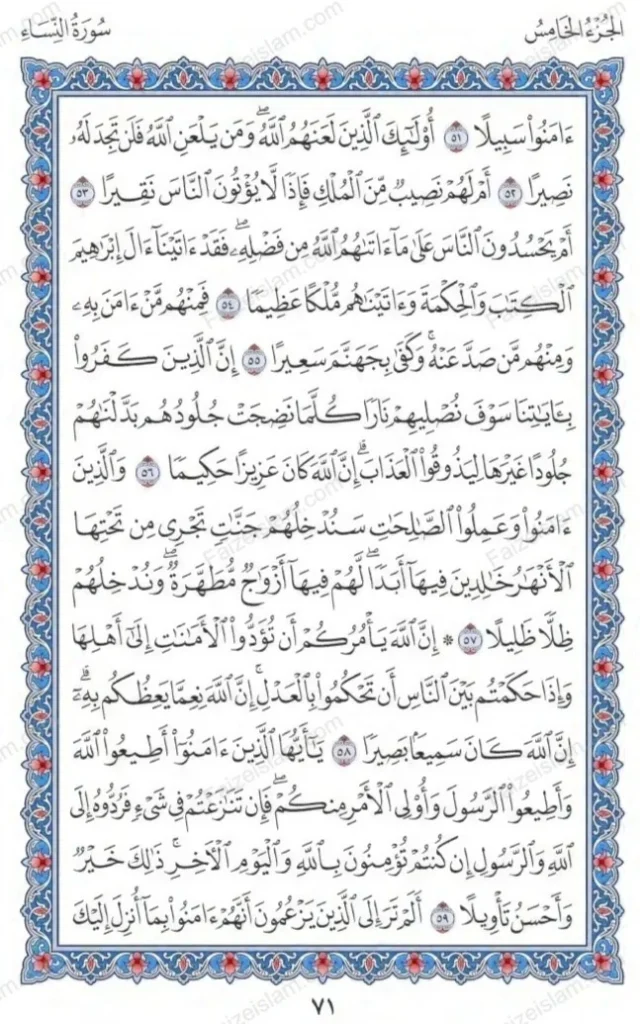 الجُزْءُ الخَامِسُ
سُورَةُ النِّسَاءِ
ءَامَنُوا۟ سَبِيلًا ٥١ أُو۟لَٰٓئِكَ ٱلَّذِينَ لَعَنَهُمُ ٱللَّهُ ۖ وَمَن يَلْعَنِ ٱللَّهُ فَلَن تَجِدَ لَهُۥ
نَصِيرًا ٥٢ أَمْ لَهُمْ نَصِيبٌ مِّنَ ٱلْمُلْكِ فَإِذًا لَّا يُؤْتُونَ ٱلنَّاسَ نَقِيرًا ٥٣
أَمْ يَحْسُدُونَ ٱلنَّاسَ عَلَىٰ مَآ ءَاتَىٰهُمُ ٱللَّهُ مِن فَضْلِهِۦ ۖ فَقَدْ ءَاتَيْنَآ ءَالَ إِبْرَٰهِيمَ
ٱلْكِتَٰبَ وَٱلْحِكْمَةَ وَءَاتَيْنَٰهُم مُّلْكًا عَظِيمًا ٥٤ فَمِنْهُم مَّنْ ءَامَنَ بِهِۦ
وَمِنْهُم مَّن صَدَّ عَنْهُ ۚ وَكَفَىٰ بِجَهَنَّمَ سَعِيرًا ٥٥ إِنَّ ٱلَّذِينَ كَفَرُوا۟
بِـَٔايَٰتِنَا سَوْفَ نُصْلِيهِمْ نَارًا كُلَّمَا نَضِجَتْ جُلُودُهُم بَدَّلْنَٰهُمْ
جُلُودًا غَيْرَهَا لِيَذُوقُوا۟ ٱلْعَذَابَ ۗ إِنَّ ٱللَّهَ كَانَ عَزِيزًا حَكِيمًا ٥٦ وَٱلَّذِينَ
ءَامَنُوا۟ وَعَمِلُوا۟ ٱلصَّٰلِحَٰتِ سَنُدْخِلُهُمْ جَنَّٰتٍ تَجْرِى مِن تَحْتِهَا
ٱلْأَنْهَٰرُ خَٰلِدِينَ فِيهَآ أَبَدًا ۖ لَّهُمْ فِيهَآ أَزْوَٰجٌ مُّطَهَّرَةٌ ۖ وَنُدْخِلُهُمْ
ظِلًّا ظَلِيلًا ٥٧ ۞ إِنَّ ٱللَّهَ يَأْمُرُكُمْ أَن تُؤَدُّوا۟ ٱلْأَمَٰنَٰتِ إِلَىٰٓ أَهْلِهَا
وَإِذَا حَكَمْتُم بَيْنَ ٱلنَّاسِ أَن تَحْكُمُوا۟ بِٱلْعَدْلِ ۚ إِنَّ ٱللَّهَ نِعِمَّا يَعِظُكُم بِهِۦٓ ۗ
إِنَّ ٱللَّهَ كَانَ سَمِيعًۢا بَصِيرًا ٥٨ يَٰٓأَيُّهَا ٱلَّذِينَ ءَامَنُوٓا۟ أَطِيعُوا۟ ٱللَّهَ
وَأَطِيعُوا۟ ٱلرَّسُولَ وَأُو۟لِى ٱلْأَمْرِ مِنكُمْ ۖ فَإِن تَنَٰزَعْتُمْ فِى شَىْءٍ فَرُدُّوهُ إِلَى
ٱللَّهِ وَٱلرَّسُولِ إِن كُنتُمْ تُؤْمِنُونَ بِٱللَّهِ وَٱلْيَوْمِ ٱلْـَٔاخِرِ ۚ ذَٰلِكَ خَيْرٌ
وَأَحْسَنُ تَأْوِيلًا ٥٩ أَلَمْ تَرَ إِلَى ٱلَّذِينَ يَزْعُمُونَ أَنَّهُمْ ءَامَنُوا۟ بِمَآ أُنزِلَ إِلَيْكَ
٧١
Faizeislam.com